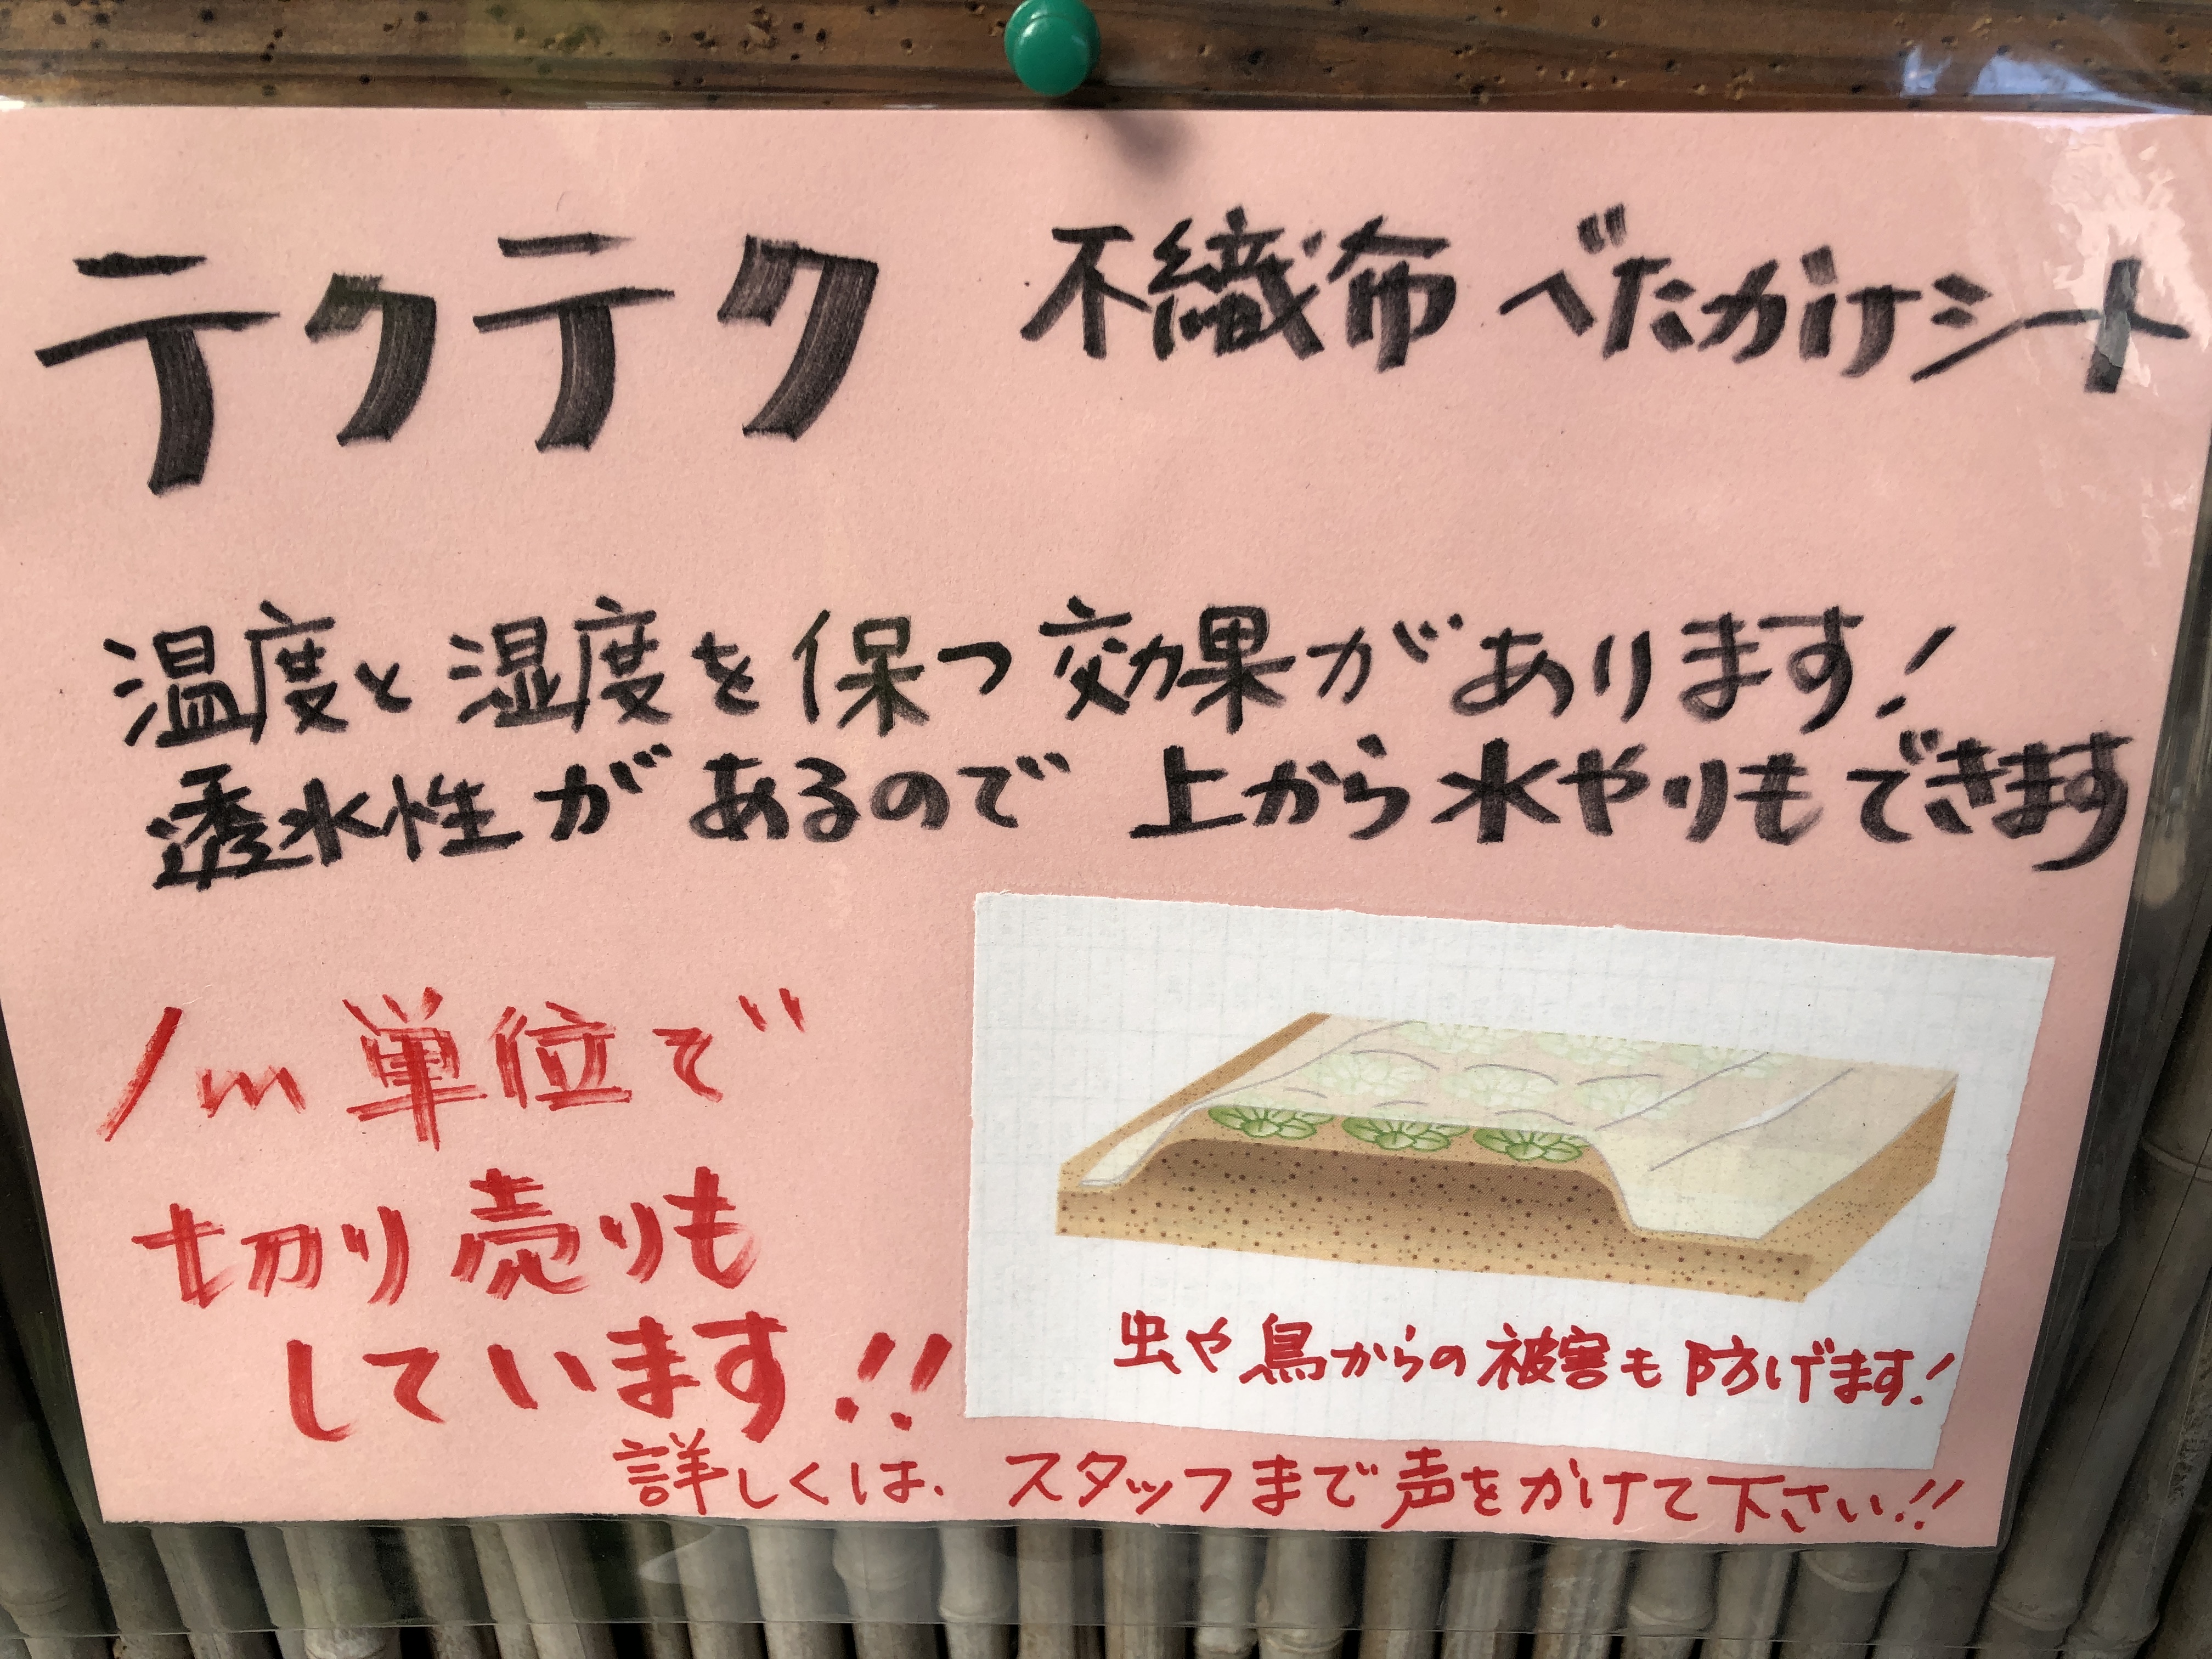 テクテク 不織布べたがけシート
温度と湿度を保つ効果があります!
透水性があるので 上から水やりもできます
1m単位で
切り売りも
しています!!
虫や鳥からの被害も防げます!
詳しくは、スタッフまで声をかけて下さい!!